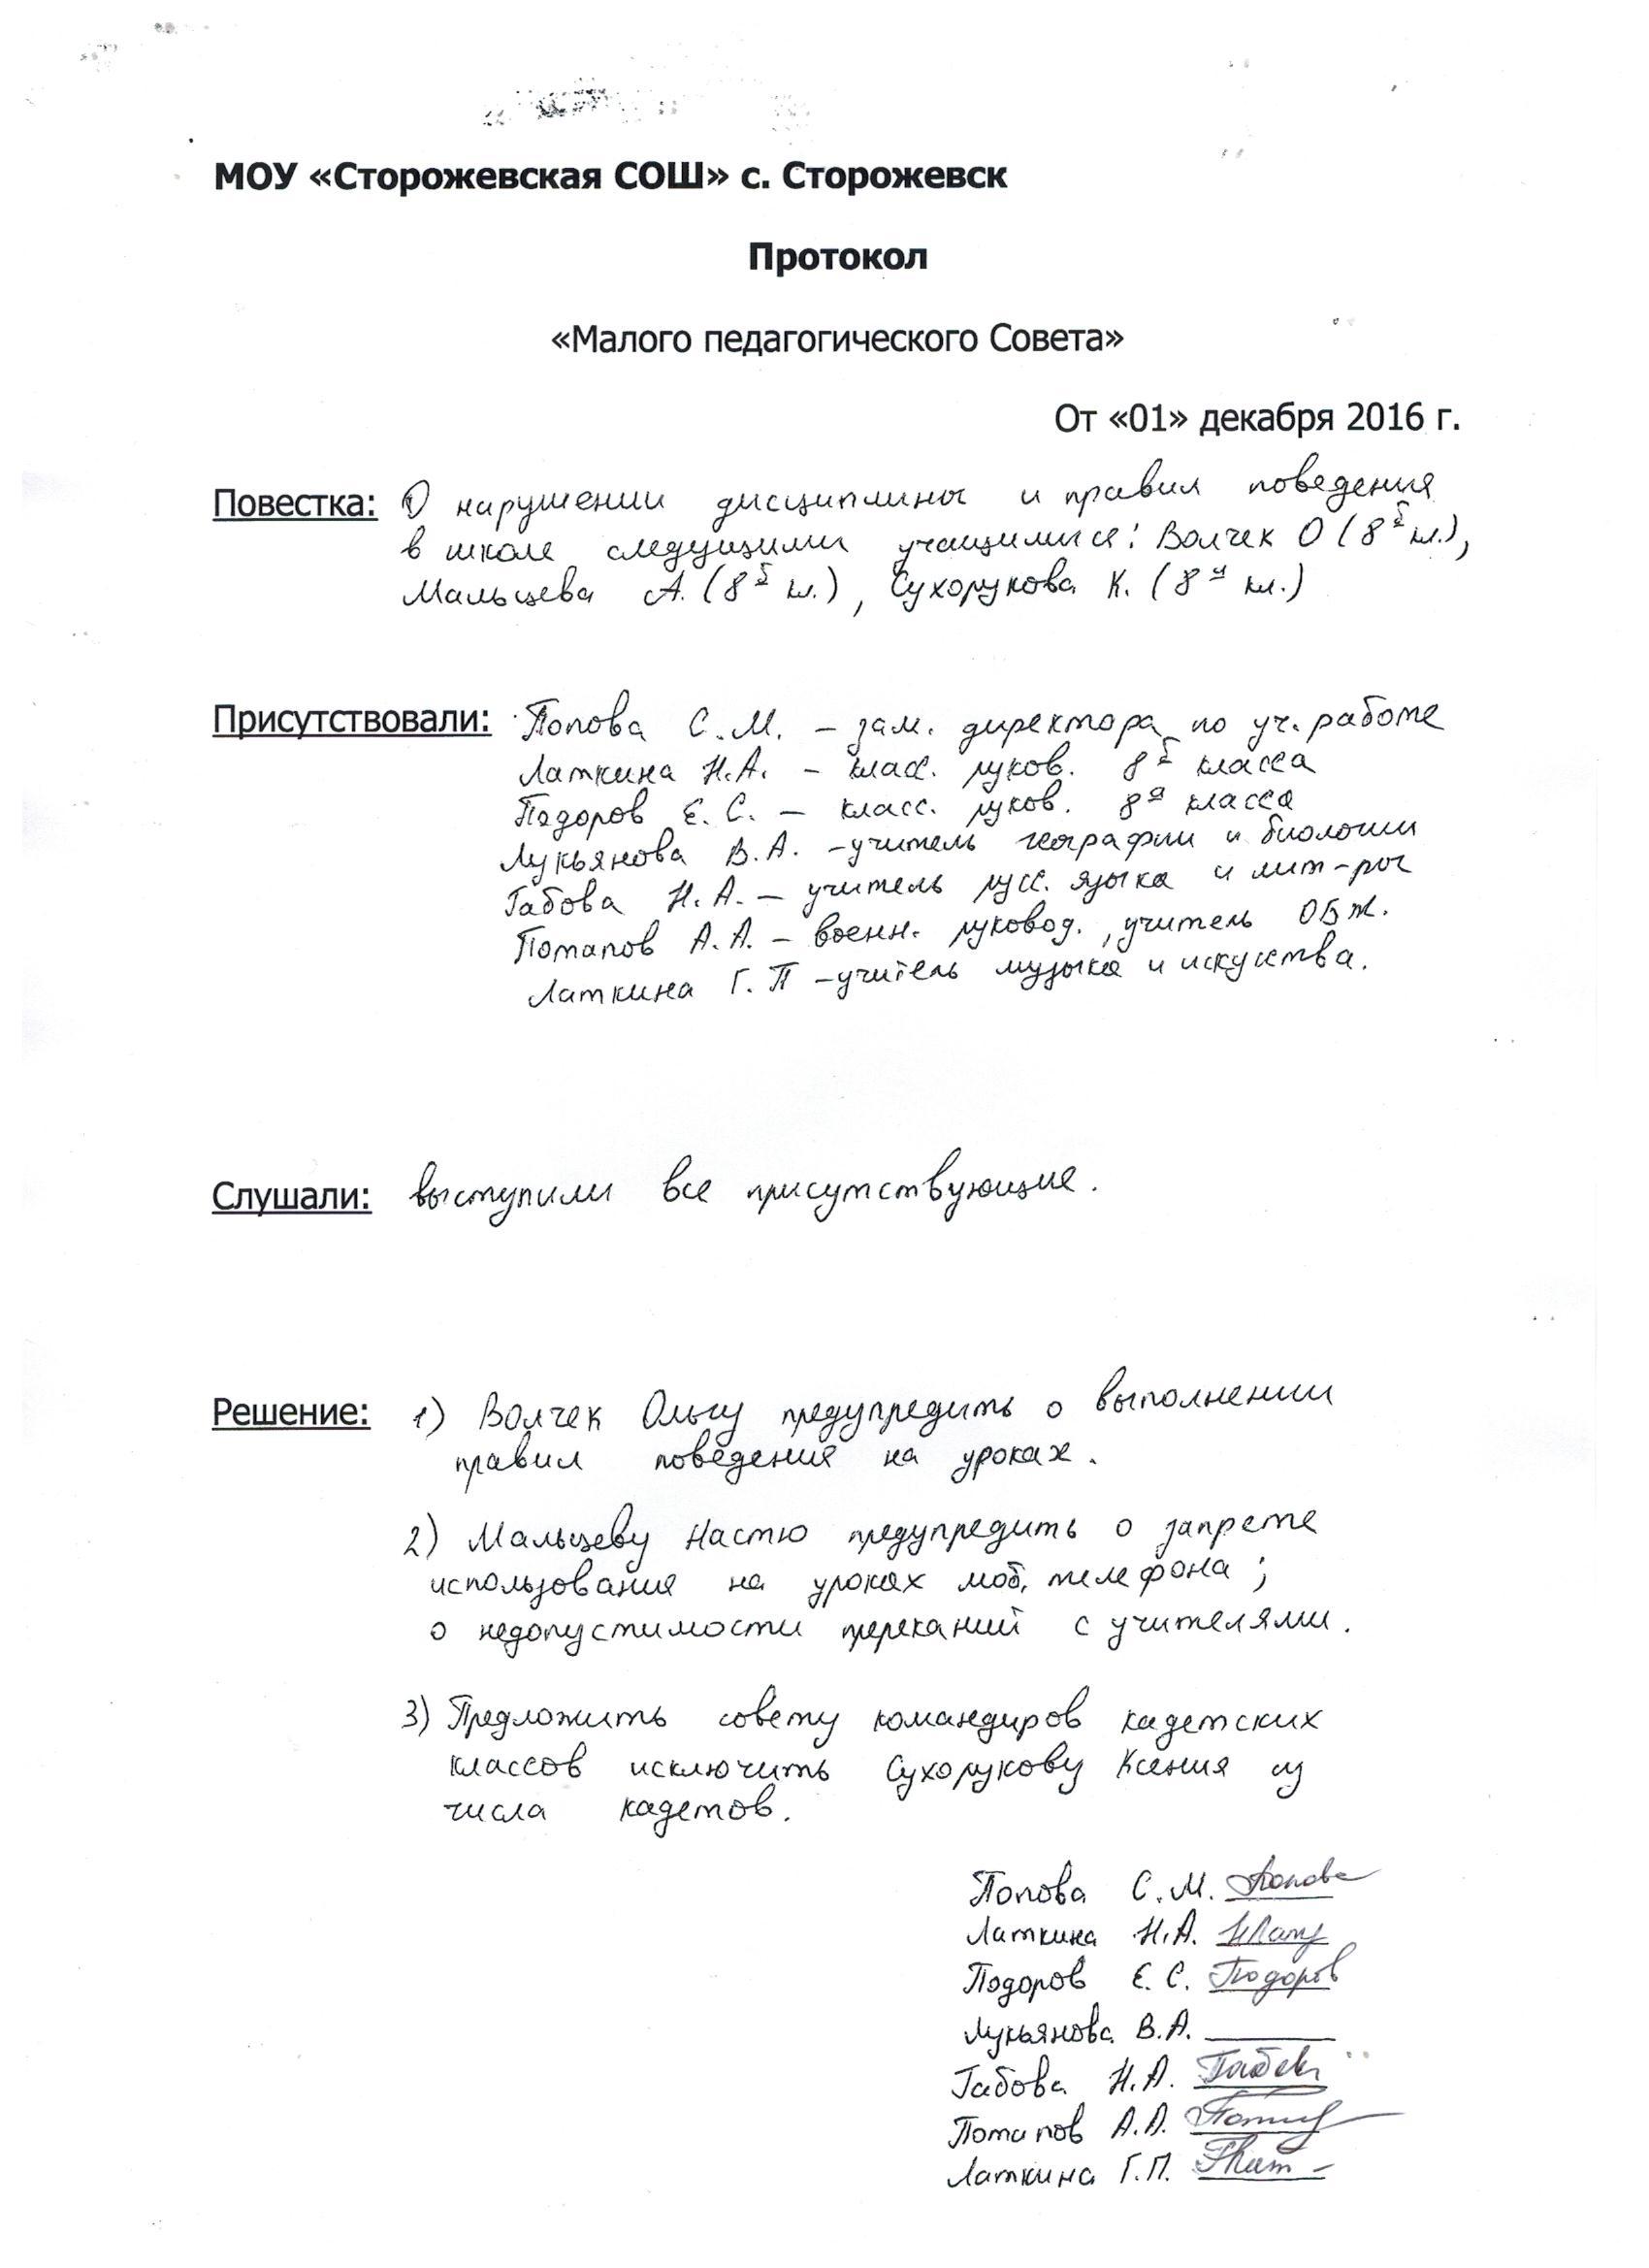 МОУ «Сторожевская СОШ» с. Сторожевск
Протокол
«Малого педагогического Совета»
От «01» декабря 2016 г.
Повестка: О нарушении дисциплины и правил поведения
в школе следующими учащимися: Волчек О (8б кл.),
Мальцева А. (8б кл.), Сухорукова К. (8а кл.)
Присутствовали: Попова С.М. – зам. директора по уч. работе
Латкина Н.А. – класс. руков. 8б класса
Подоров Е.С. – класс. руков. 8а класса
Лукьянова В.А. – учитель географии и биологии
Габова Н.А. – учитель русс. языка и лит-ры
Потапов А.А. – военн. руковод., учитель ОБЖ.
Латкина Г.П – учитель музыки и искуства.
Слушали: выступили все присутствующие.
Решение: 1) Волчек Ольгу предупредить о выполнении
правил поведения на уроках.
2) Мальцеву Настю предупредить о запрете
использования на уроках моб. телефона;
о недопустимости пререканий с учителями.
3) Предложить совету командиров кадетских
классов исключить Сухорукову Ксения из
числа кадетов.
Попова С.М. Попова
Латкина Н.А. НЛатк
Подоров Е.С. Подоров
Лукьянова В.А.
Габова Н.А. Габов
Потапов А.А.
Латкина Г.П.